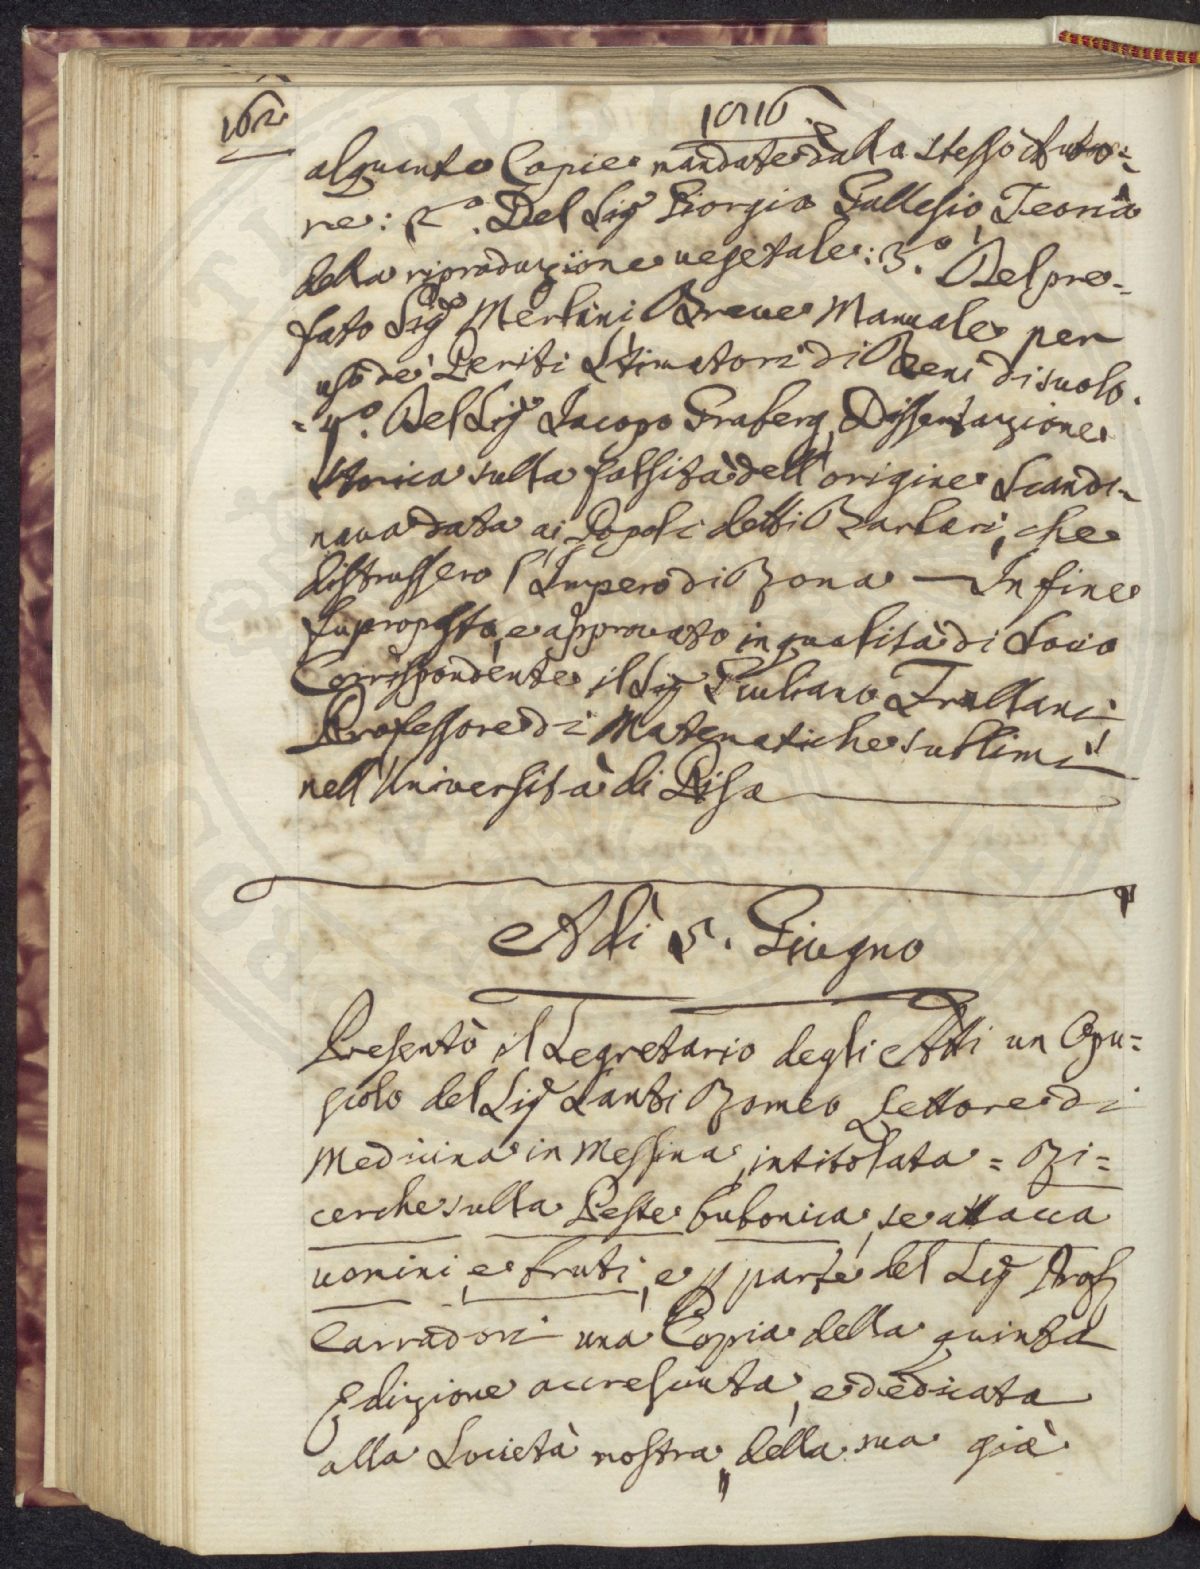 162.
1816.
alquante Copie mandate dallo stesso Auto=
re: 2.º Del Sigr Giorgio Gallesio, Teoria
della riproduzione vegetale: 3.º Del pre=
fato Sigr Merlini Breve Manuale per
uso de' Periti Stimatori di Beni di suolo.
= 4.º Del Sigr Jacopo Graberg, Dissertazione
Storica sulla falsità dell'origine Scandi=
nava data ai Popoli detti Barbari, che
distrussero l'Impero di Roma — Infine
fu proposto, e approvato in qualità di Socio
Corrispondente il Sigr Giuliano Frullani
Professore di Matematiche sublimi
nell'Università di Pisa
Adì 5. Giugno
Presentò il Segretario degli Atti un Opu=
scolo del Sigr Santi Romeo Lettore di
Medicina in Messina, intitolata = Ri=
cerche sulla Peste bubonica, se attacca
uomini, e bruti, e p parte del Sigr Prof
Carradori una Copia della quinta
Edizione accresciuta, e dedicata
alla Società nostra, della sua già